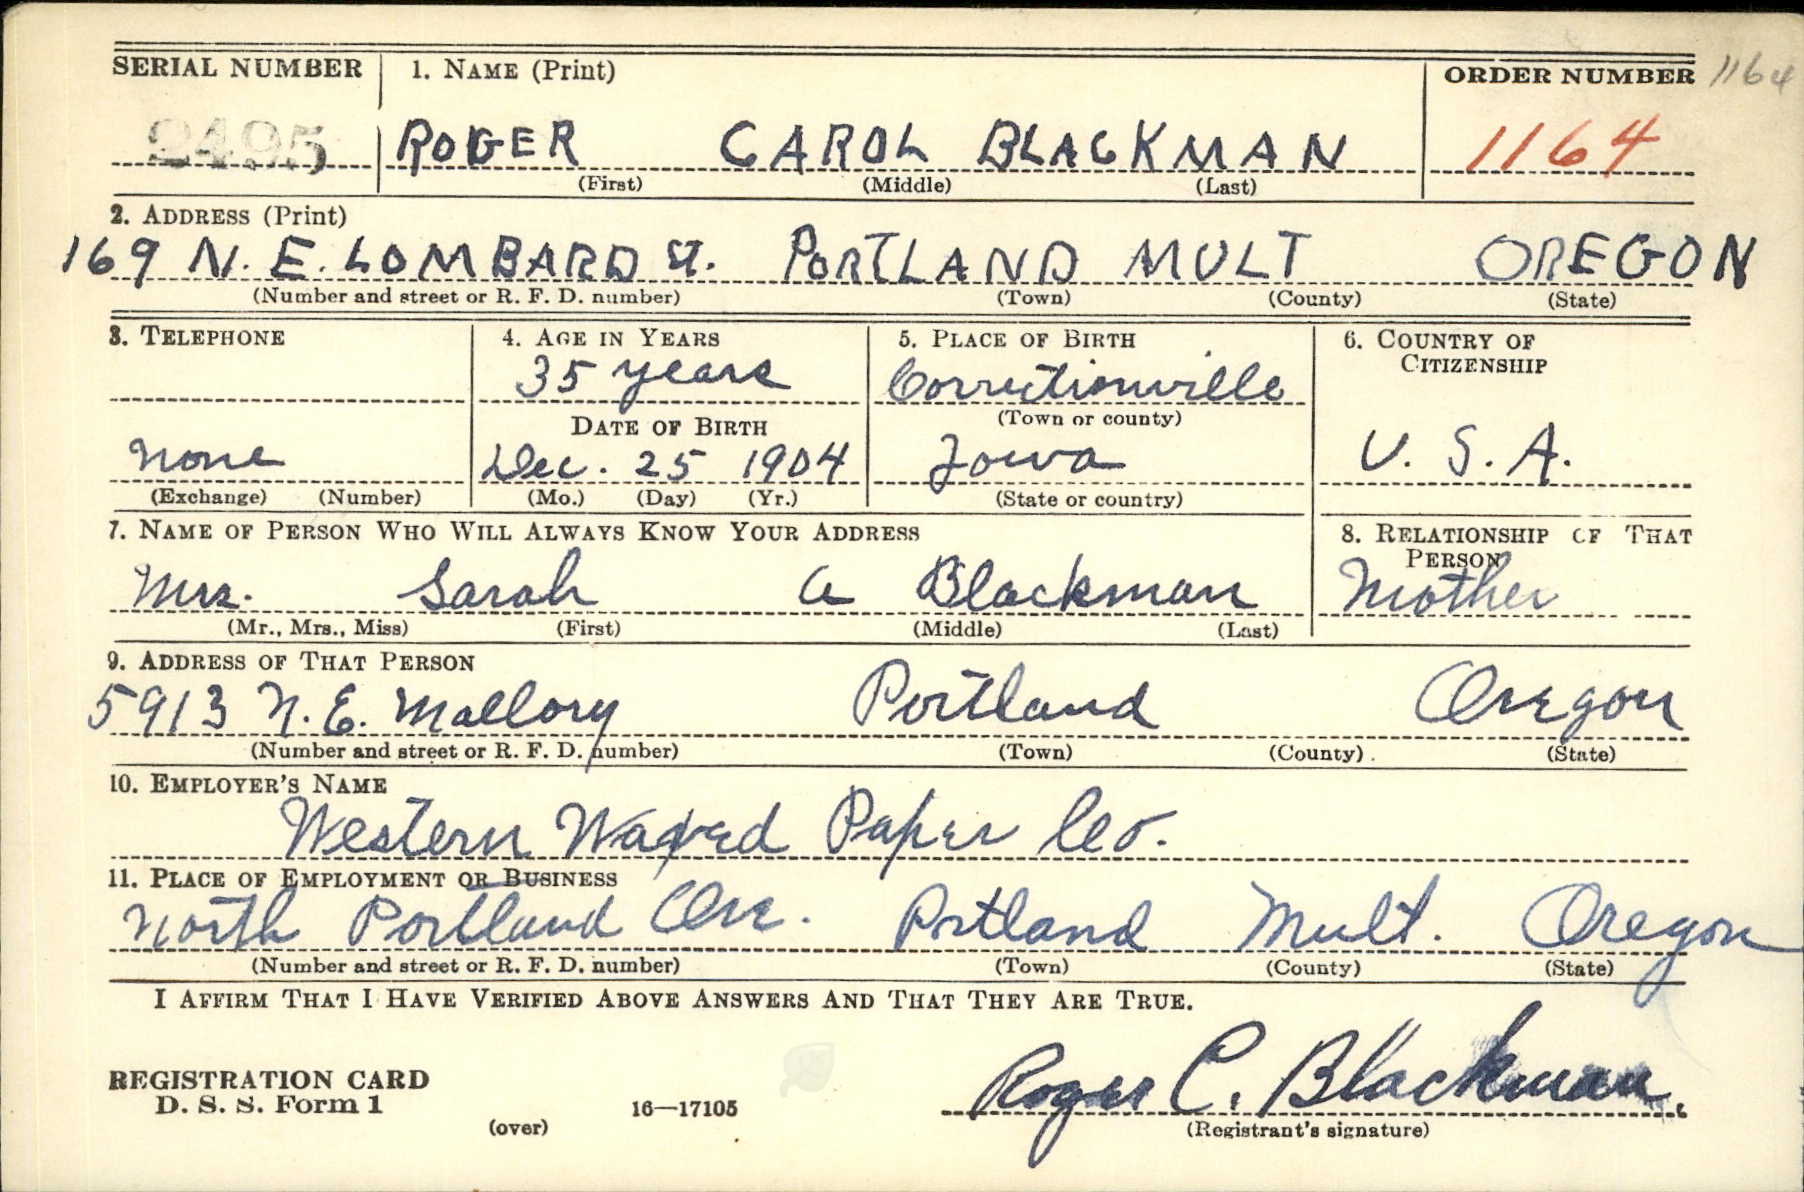 SERIAL NUMBER 1. NAME (Print) ORDER NUMBER 1164
2495 ROGER CAROL BLACKMAN 1164
(First) (Middle) (Last)
2. ADDRESS (Print)
169 N. E. LOMBARD St. PORTLAND MULT OREGON
(Number and street or R. F. D. number) (Town) (County) (State)
3. TELEPHONE 4. AGE IN YEARS 5. PLACE OF BIRTH 6. COUNTRY OF
CITIZENSHIP
35 years Correctionville
(Town or county)
DATE OF BIRTH
none Dec. 25 1904 Iowa U. S. A.
(Exchange) (Number) (Mo.) (Day) (Yr.) (State or country)
7. NAME OF PERSON WHO WILL ALWAYS KNOW YOUR ADDRESS 8. RELATIONSHIP OF THAT
PERSON
Mrs. Sarah A Blackman Mother
(Mr., Mrs., Miss) (First) (Middle) (Last)
9. ADDRESS OF THAT PERSON
5913 N. E. Mallory Portland Oregon
(Number and street or R. F. D. number) (Town) (County) (State)
10. EMPLOYER'S NAME
Western Waxed Paper Co.
11. PLACE OF EMPLOYMENT OR BUSINESS
North Portland Ore. Portland Mult. Oregon
(Number and street or R. F. D. number) (Town) (County) (State)
I AFFIRM THAT I HAVE VERIFIED ABOVE ANSWERS AND THAT THEY ARE TRUE.
REGISTRATION CARD
D. S. S. Form 1
(over) 16—17105
Roger C. Blackman.
(Registrant's signature)